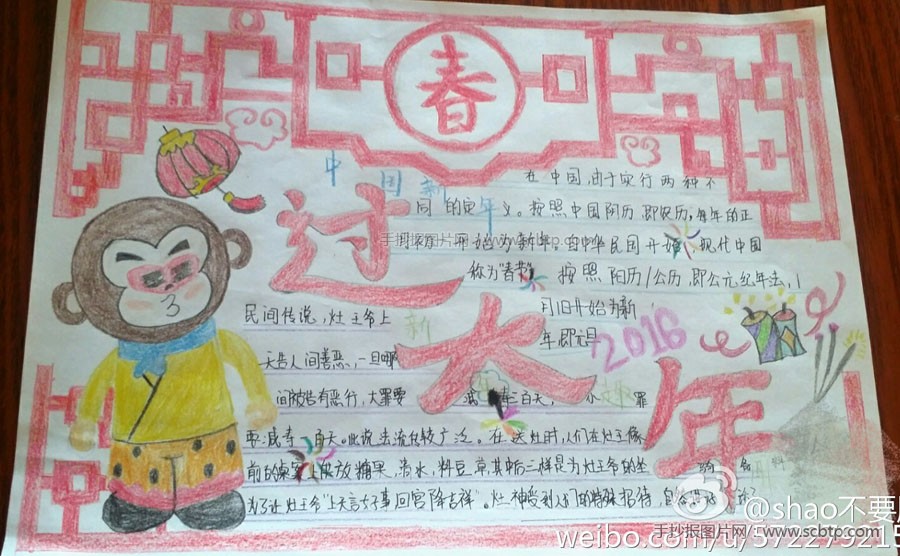 春
中国新年
过大年
2016
在中国,由于实行两种不
同的定义。按照中国阴历即农历,每年的正
开始为新年。自中华民国开始,现代中国
称为"春节" 按照阳历/公历,即公元纪年法,1
月1日开始为新
年,即元旦
民间传说,灶王爷上
天告人间善恶,一旦哪
间被告有恶行,大罪要
减寿三百天, 小罪
要减寿一百天。此说法流传较广泛。在送灶时,人们在灶王像
前的桌案上供放糖果,清水,料豆,
为了让灶王爷"上天言好事,回宫降吉祥"。灶神受到人们的特殊招待,
手抄报图片网 www.scbtp.com
@shao不要
weibo.com/u/572279215
手抄报图片网/www.scbtp.com